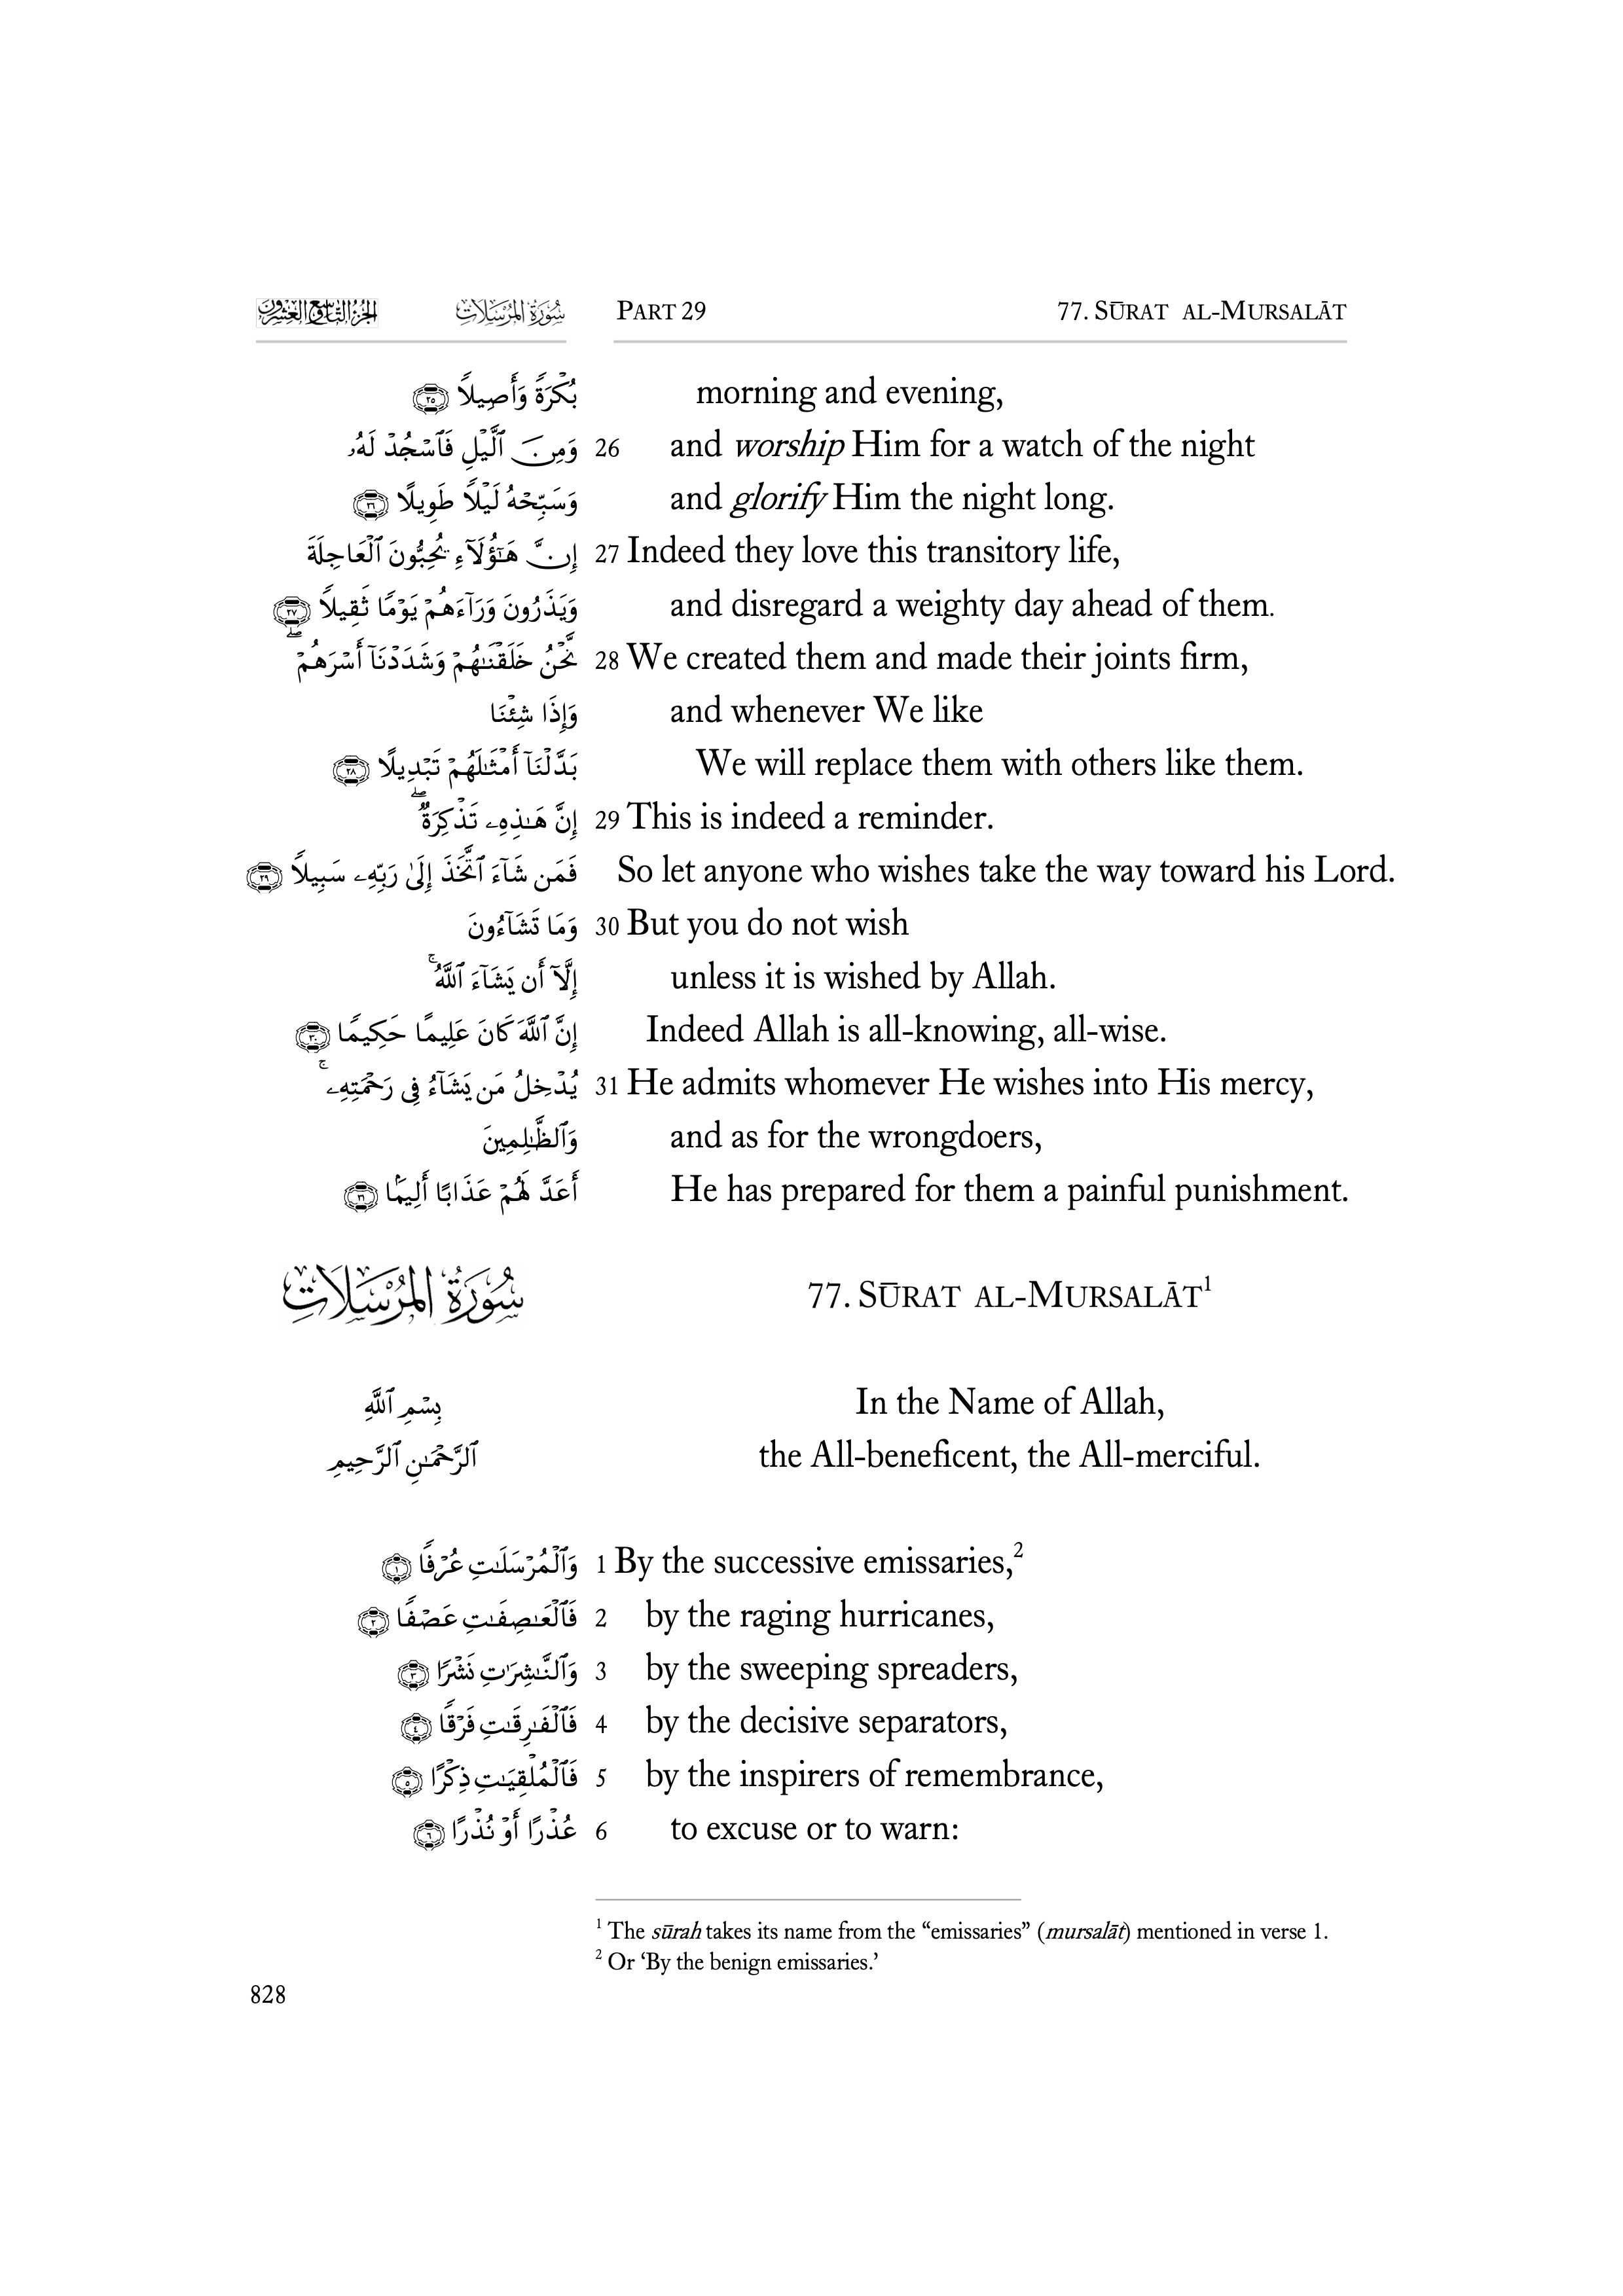 الجزء التاسع والعشرون سُورَةُ المُرْسَلَات PART 29 77. SŪRAT AL-MURSALĀT
بُكْرَةً وَأَصِيلًا ﴿٢٥﴾ morning and evening,
وَمِنَ ٱلَّيْلِ فَٱسْجُدْ لَهُۥ 26 and worship Him for a watch of the night
وَسَبِّحْهُ لَيْلًا طَوِيلًا ﴿٢٦﴾ and glorify Him the night long.
إِنَّ هَـٰٓؤُلَآءِ يُحِبُّونَ ٱلْعَاجِلَةَ 27 Indeed they love this transitory life,
وَيَذَرُونَ وَرَآءَهُمْ يَوْمًا ثَقِيلًا ﴿٢٧﴾ and disregard a weighty day ahead of them.
نَّحْنُ خَلَقْنَـٰهُمْ وَشَدَدْنَآ أَسْرَهُمْ ۖ 28 We created them and made their joints firm,
وَإِذَا شِئْنَا and whenever We like
بَدَّلْنَآ أَمْثَـٰلَهُمْ تَبْدِيلًا ﴿٢٨﴾ We will replace them with others like them.
إِنَّ هَـٰذِهِۦ تَذْكِرَةٌ ۖ 29 This is indeed a reminder.
فَمَن شَآءَ ٱتَّخَذَ إِلَىٰ رَبِّهِۦ سَبِيلًا ﴿٢٩﴾ So let anyone who wishes take the way toward his Lord.
وَمَا تَشَآءُونَ 30 But you do not wish
إِلَّآ أَن يَشَآءَ ٱللَّهُ ۚ unless it is wished by Allah.
إِنَّ ٱللَّهَ كَانَ عَلِيمًا حَكِيمًا ﴿٣٠﴾ Indeed Allah is all-knowing, all-wise.
يُدْخِلُ مَن يَشَآءُ فِى رَحْمَتِهِۦ ۚ 31 He admits whomever He wishes into His mercy,
وَٱلظَّـٰلِمِينَ and as for the wrongdoers,
أَعَدَّ لَهُمْ عَذَابًا أَلِيمًۢا ﴿٣١﴾ He has prepared for them a painful punishment.
سُورَةُ المُرْسَلَاتِ 77. SŪRAT AL-MURSALĀT¹
بِسْمِ ٱللَّهِ In the Name of Allah,
ٱلرَّحْمَـٰنِ ٱلرَّحِيمِ the All-beneficent, the All-merciful.
وَٱلْمُرْسَلَـٰتِ عُرْفًا ﴿١﴾ 1 By the successive emissaries,²
فَٱلْعَـٰصِفَـٰتِ عَصْفًا ﴿٢﴾ 2 by the raging hurricanes,
وَٱلنَّـٰشِرَٰتِ نَشْرًا ﴿٣﴾ 3 by the sweeping spreaders,
فَٱلْفَـٰرِقَـٰتِ فَرْقًا ﴿٤﴾ 4 by the decisive separators,
فَٱلْمُلْقِيَـٰتِ ذِكْرًا ﴿٥﴾ 5 by the inspirers of remembrance,
عُذْرًا أَوْ نُذْرًا ﴿٦﴾ 6 to excuse or to warn:
¹ The sūrah takes its name from the “emissaries” (mursalāt) mentioned in verse 1.
² Or ‘By the benign emissaries.’
828